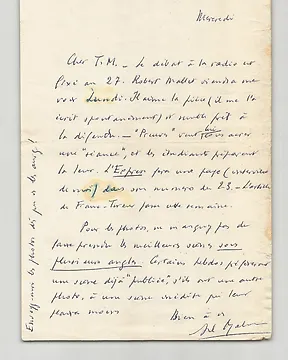 Mercredi
Cher T.M. – Le débat à la radio est
fixé au 27. Robert Mallet viendra me
voir Lundi. Il aime la pièce (il me l'a
écrit spontanément) et semble prêt à
la défendre – "Preuves" veut aussi
une "séance", et les étudiants préparent
la leur. L'Express fera une page (
de moi) dans son numéro du 23 – L'article
de France-Tireur paru cette semaine.
Pour les photos, ne
faire prendre les meilleures scènes sous
plusieurs angles. Certains hebdos préfèrent
une scène déjà "publiée", s'ils ont une autre
photo, à une scène inédite qui leur
plaira moins
Bien à vs
Envoyez-moi les photos dès que vs les aurez!